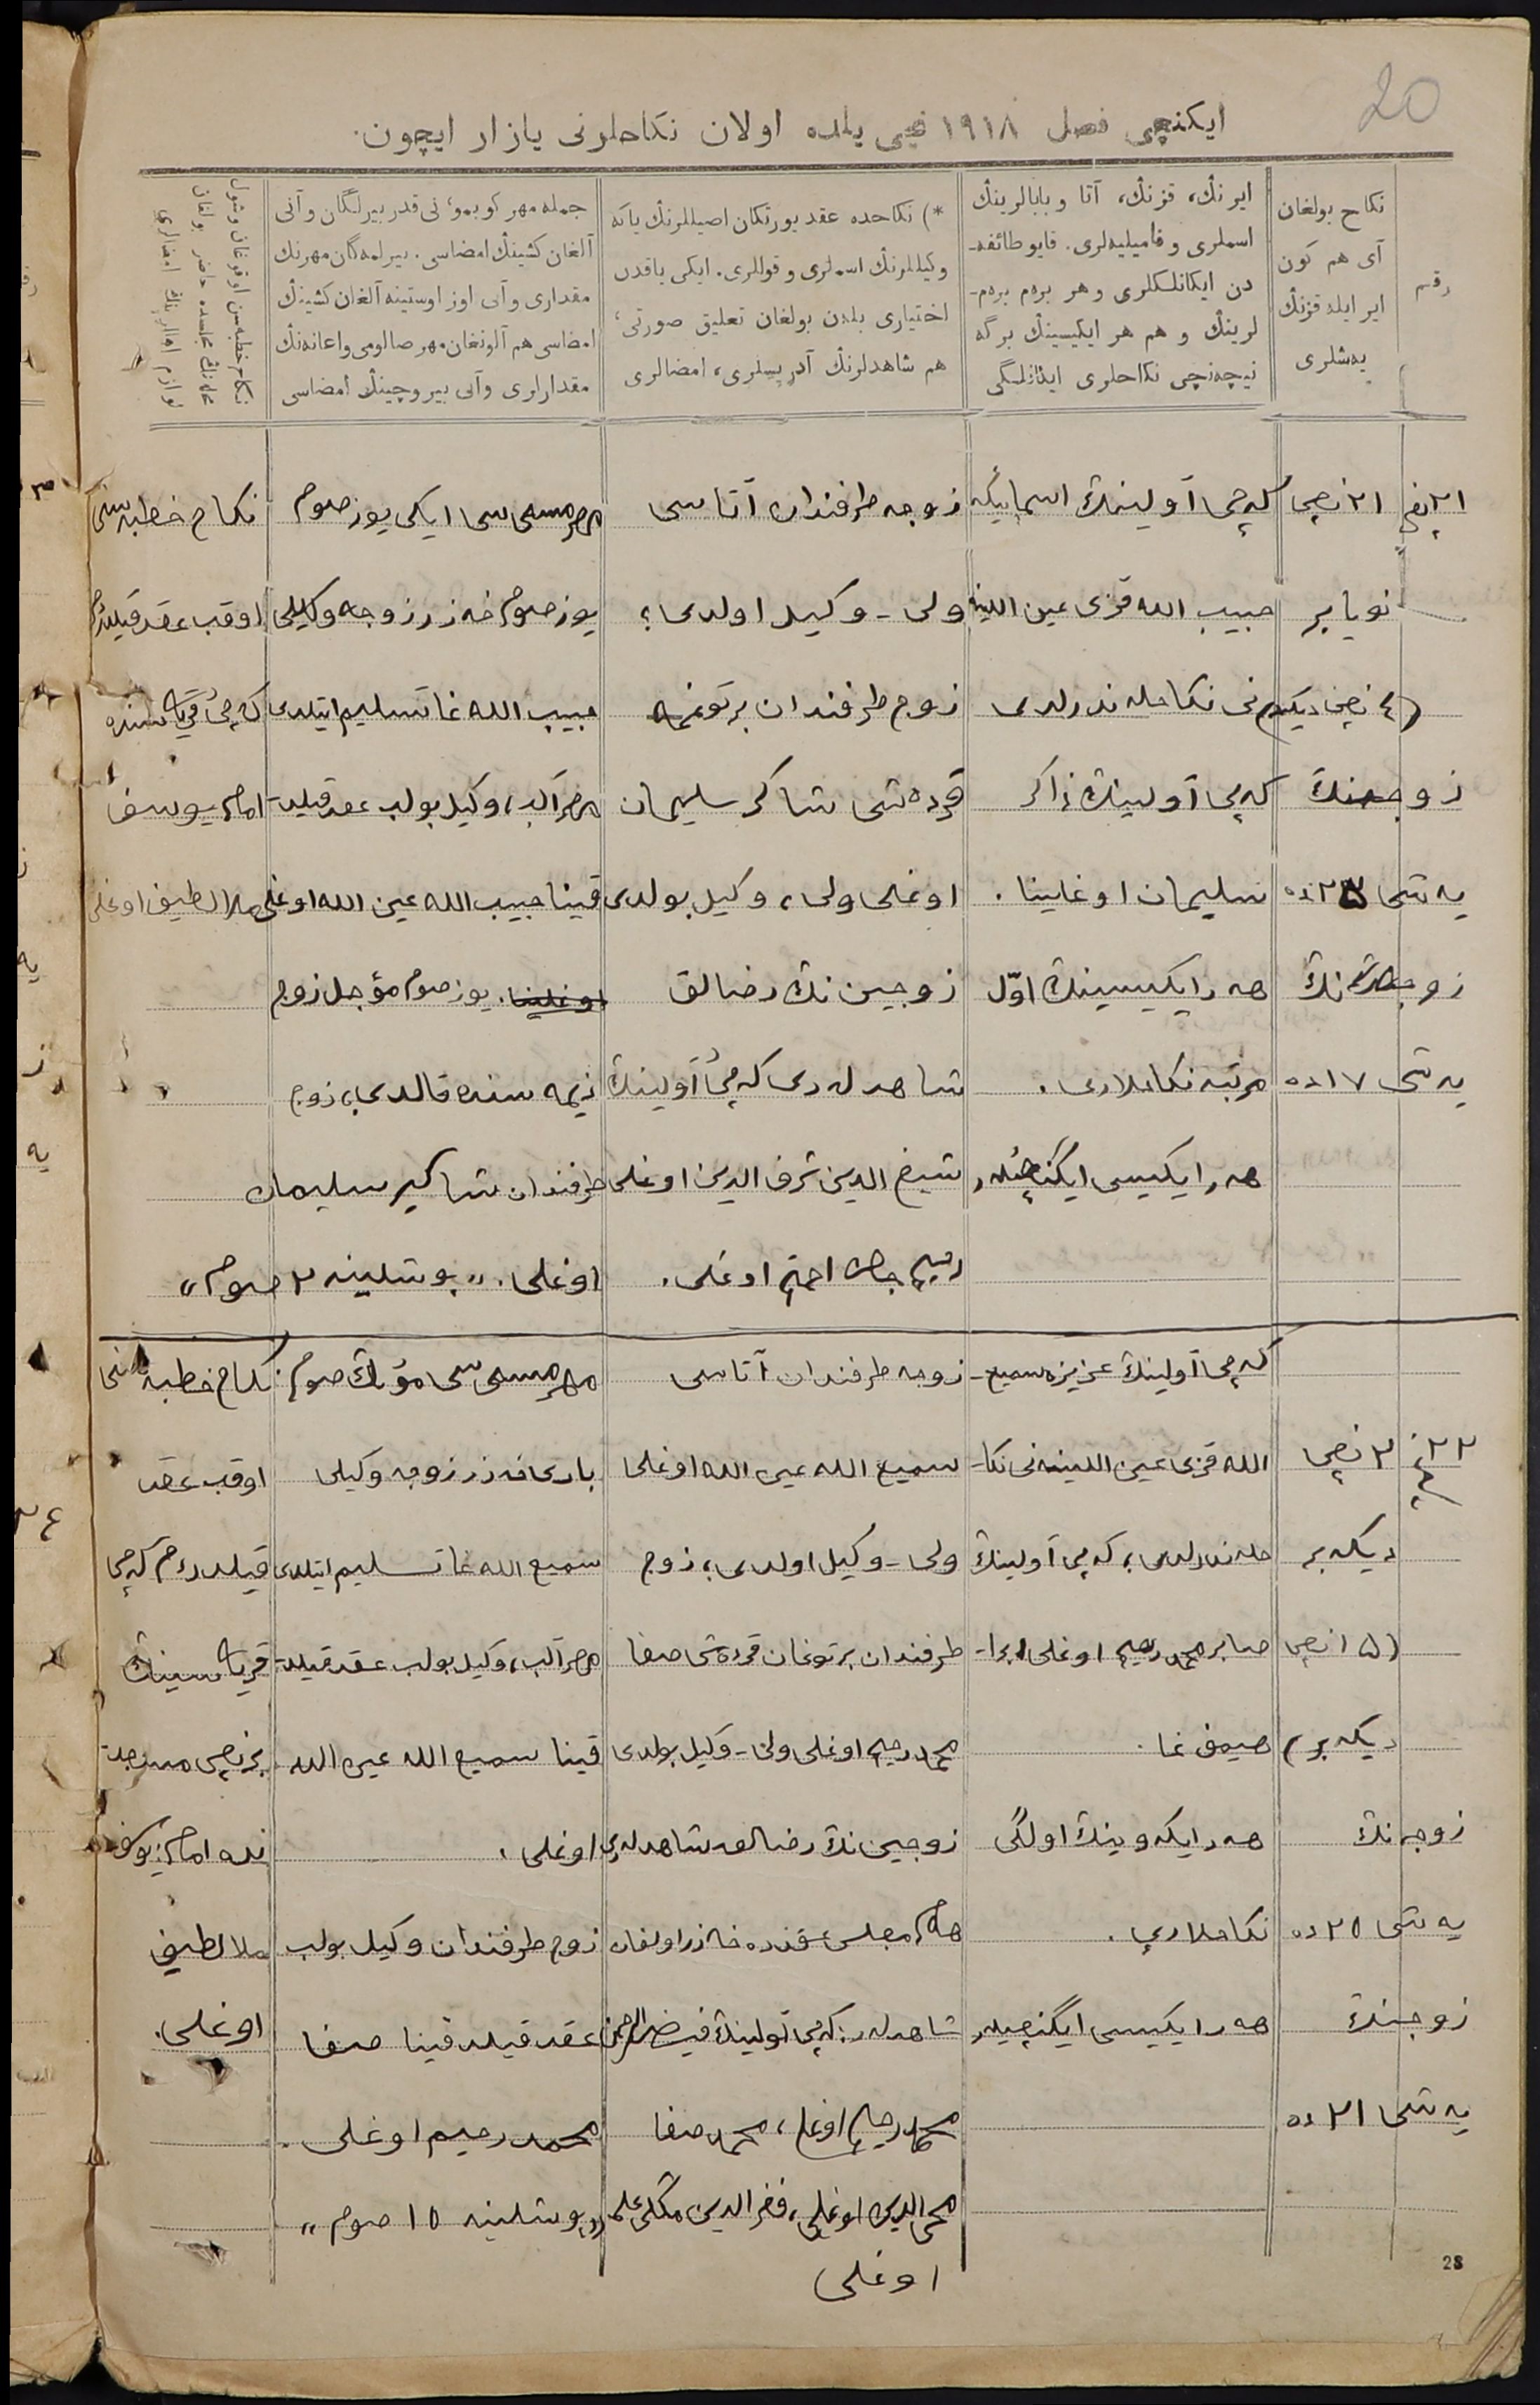 20
ایكنچی فصل ١٩١٨ نچی یلده اولان نكاحلرنی یازار ایچون.
رقم
نكاح بولغان
آی هم كون
ایر ایله قزنڭ
یەشلری
ایرنڭ، قزنڭ، آتا و بابالرینڭ
اسملری و فامیلیەلری. قایو طائفه-
دن ایكانلكلری و هر بردم بردم-
لرینڭ و هم هر ایكیسینڭ برگه
نیچەنچی نكاحلری ایكانلگی
*) نكاحده عقد یورتكان اصیللرنڭ یاكه
وكیللرنڭ اسملری و قوللری. ایكی یاقدن
اختیاری بلەن بولغان تعلیق صورتی،
هم شاهدلرنڭ آدریسلری، امضالری
جمله مهر كوبمو، نی قدر بیرلگان وآنی
آلغان كشینڭ امضاسی. بیرلمەگان مهرنڭ
مقداری وآنی اوز اوستینه آلغان كشینڭ
امضاسی هم آلونغان مهر صالومی واعانەنڭ
مقدارلری وآنی بیروچینڭ امضاسی
نكاح خطبەسن اوقوغان وشول
محلەنڭ مجلسده حاضر بولغان
٢١نچی
٢١ نچی
نویابر
(٤ نچی دیكبر)
زوجنڭ
یەشی ٢٥ده
زوجەنڭ
یەشی ١٧ده
كەچی آولینڭ اسمابیكه
حبیب الله قزی عین اللینه
نی نكاحلەندرلدی
كەچی آولینڭ ذاكر
سلیمان اوغلینا.
هەر ایكیسینڭ اوّل
مرتبه نكاحلاری.
هەر ایكیسی ایگنچیلەر
زوجه طرفندان آتاسی
ولی - وكیل اولدی؛
زوج طرفندان برتوغمه
قردەشی شاكر سلیمان
اوغلی ولی، وكیل بولدی
زوجین نڭ رضالق
شاهدلەری كەچی آولینڭ
شیخ الدین شرف الدین اوغلی
رحیم جان احمد اوغلی.
مهر مسمی سی ایكی یوز صوم
یوز صوم نەزر زوجه وكیلی
حبیب الله غا تسلیم ایتلدی
مهر آلب، وكیل بولب عقد قیلد-
قینا حبیب الله عین الله اوغلی
اوغلینا. یوز صوم مؤجل زوج
ذیمەسنده قالدی؛ زوج
طرفندان شاكیر سلیمان
اوغلی. „بوشلینه ٢ صوم„
نكاح خطبەسنی
اوقب عقد قیلدم
كەچی قریەسنده
امام یوسف
ملا لطیف اوغلی
٢٢نچی
٢ نچی
دیكەبر
(١٥ نچی
دیكەبر)
زوجنڭ
یەشی ٢٥ ده
زوجەنڭ
یەشی ٢١ ده
كەچی آولینڭ عزیزه سمیع-
الله قزی عین اللینه نی نكا-
حلەندرلدی؛ كەچی آولینڭ
صابر محمد رحیم اوغلی ابرا-
هیمف غا.
هەر ایكەوینڭ اولگی
نكاحلاری.
هەر ایكیسی ایگنچیلەر
زوجه طرفندان آتاسی
سمیع الله عین الله اوغلی
ولی - وكیل اولدی؛ زوج
طرفندان برتوغان قردەشی صفا
محمد رحیم اوغلی ولی - وكیل بولدی
زوجین نڭ رضالق شاهدلەری
هم مجلس عقدده حاضر اولغان
شاهدلەر: كەچی آولینڭ فیض الرحمن
محمد رحیم اوغلی، محمد صفا
محی الدین اوغلی، فخر الدین
اوغلی
مهر مسمی سی مونڭ صوم.
باری نەزر زوجه وكیلی
سمیع الله غا تسلیم ایتلدی
مهر آلب، وكیل بولب عقد قیلد-
قینا سمیع الله عین الله
اوغلی.
زوج طرفندان وكیل بولب
عقد قیلدقینا صفا
محمد رحیم اوغلی.
„بوشلینه ١٥ صوم„
نكاح خطبەسنی
اوقب عقد
قیلدم كەچی
قریەسینڭ
برنچی مسجد-
نده امام: یوسف
ملا لطیف
اوغلی.
28